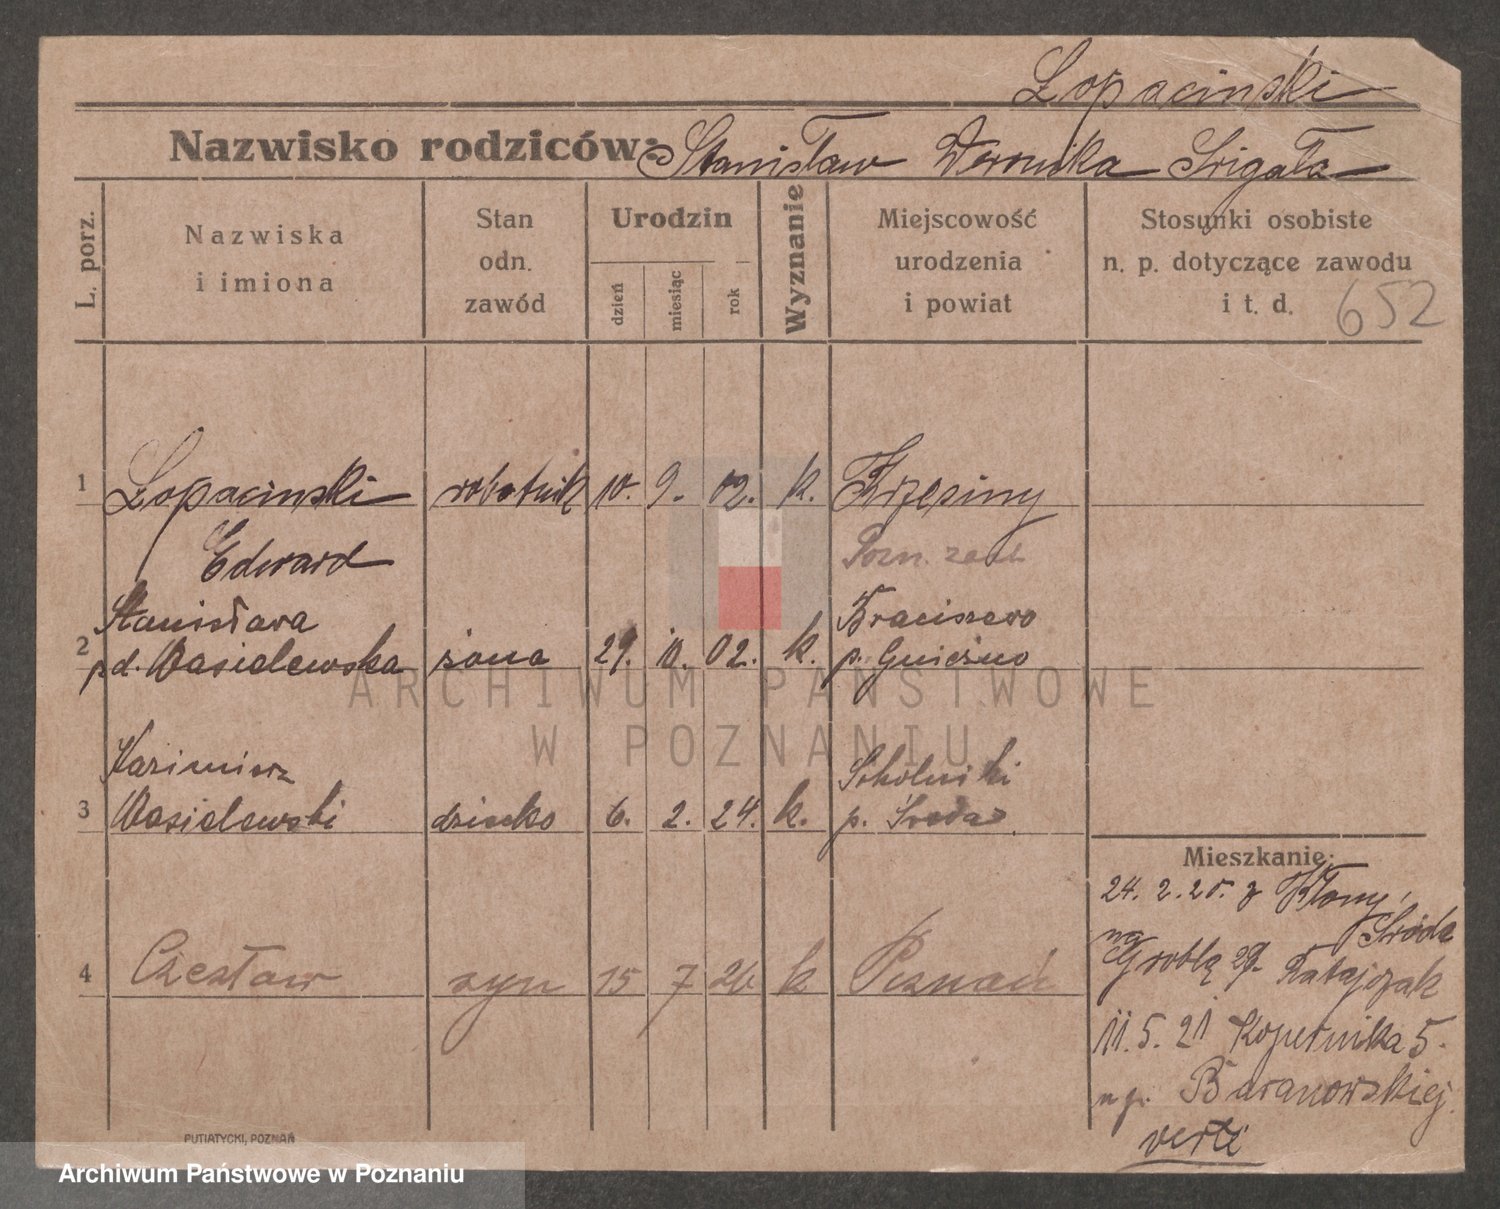 Łopacinski
Nazwisko rodziców: Stanisław Weronika Srigała
L. porz.
Nazwiska i imiona
Stan odn. zawód
Urodzin
dzień miesiąc rok
Wyznanie
Miejscowość urodzenia i powiat
Stosunki osobiste n. p. dotyczące zawodu i t. d.
652
1 Łopacinski robotnik 10. 9. 02. k. Krzesiny
Edward Pozn. zach
Stanisława Braciszewo
2 pd. Wasielewska żona 29. 10. 02. k. p. Gniezno
Kazimierz Sokolniki
3 Wasielewski dziecko 6. 2. 24. k. p. Środa
4 Czesław syn 15 7 26 k Poznań
Mieszkanie:
24. 2. 25. z Kłony,
Środa
na Groblę 29. Ratajczak
11. 5. 21 Kopernika 5.
Baranowskiej
verte
PUTIATYCKI, POZNAŃ
ARCHIWUM PAŃSTWOWE
W POZNANIU
Archiwum Państwowe w Poznaniu